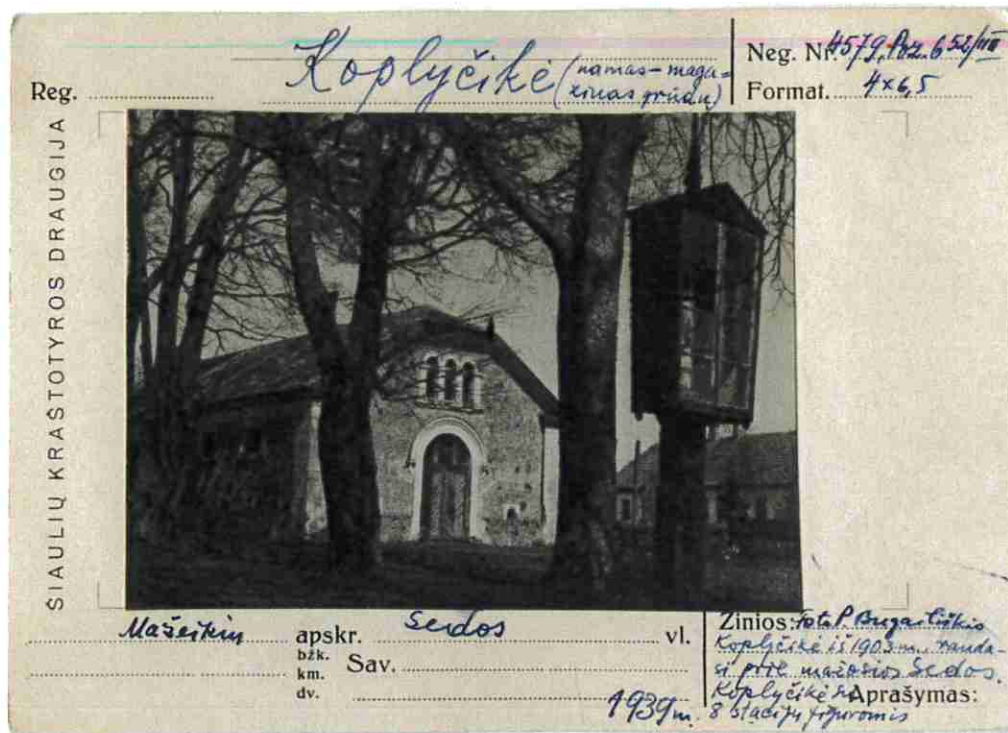 Koplyčikė (namas-maga-
zinas grūdų)
Neg. Nr. 4579, Poz. 652/III
Reg.
Format. 4x6,5
ŠIAULIŲ KRAŠTOTYROS DRAUGIJA
Mažeikių apskr. Sedos vl.
bžk.
km.
dv.
Sav.
1939 m.
Žinios: Foto P. Bugailiškio
Koplyčikė iš 1903 m. randa-
si prie mažosios Sedos.
Koplyčikė su
Aprašymas:
8 stacijų figūromis